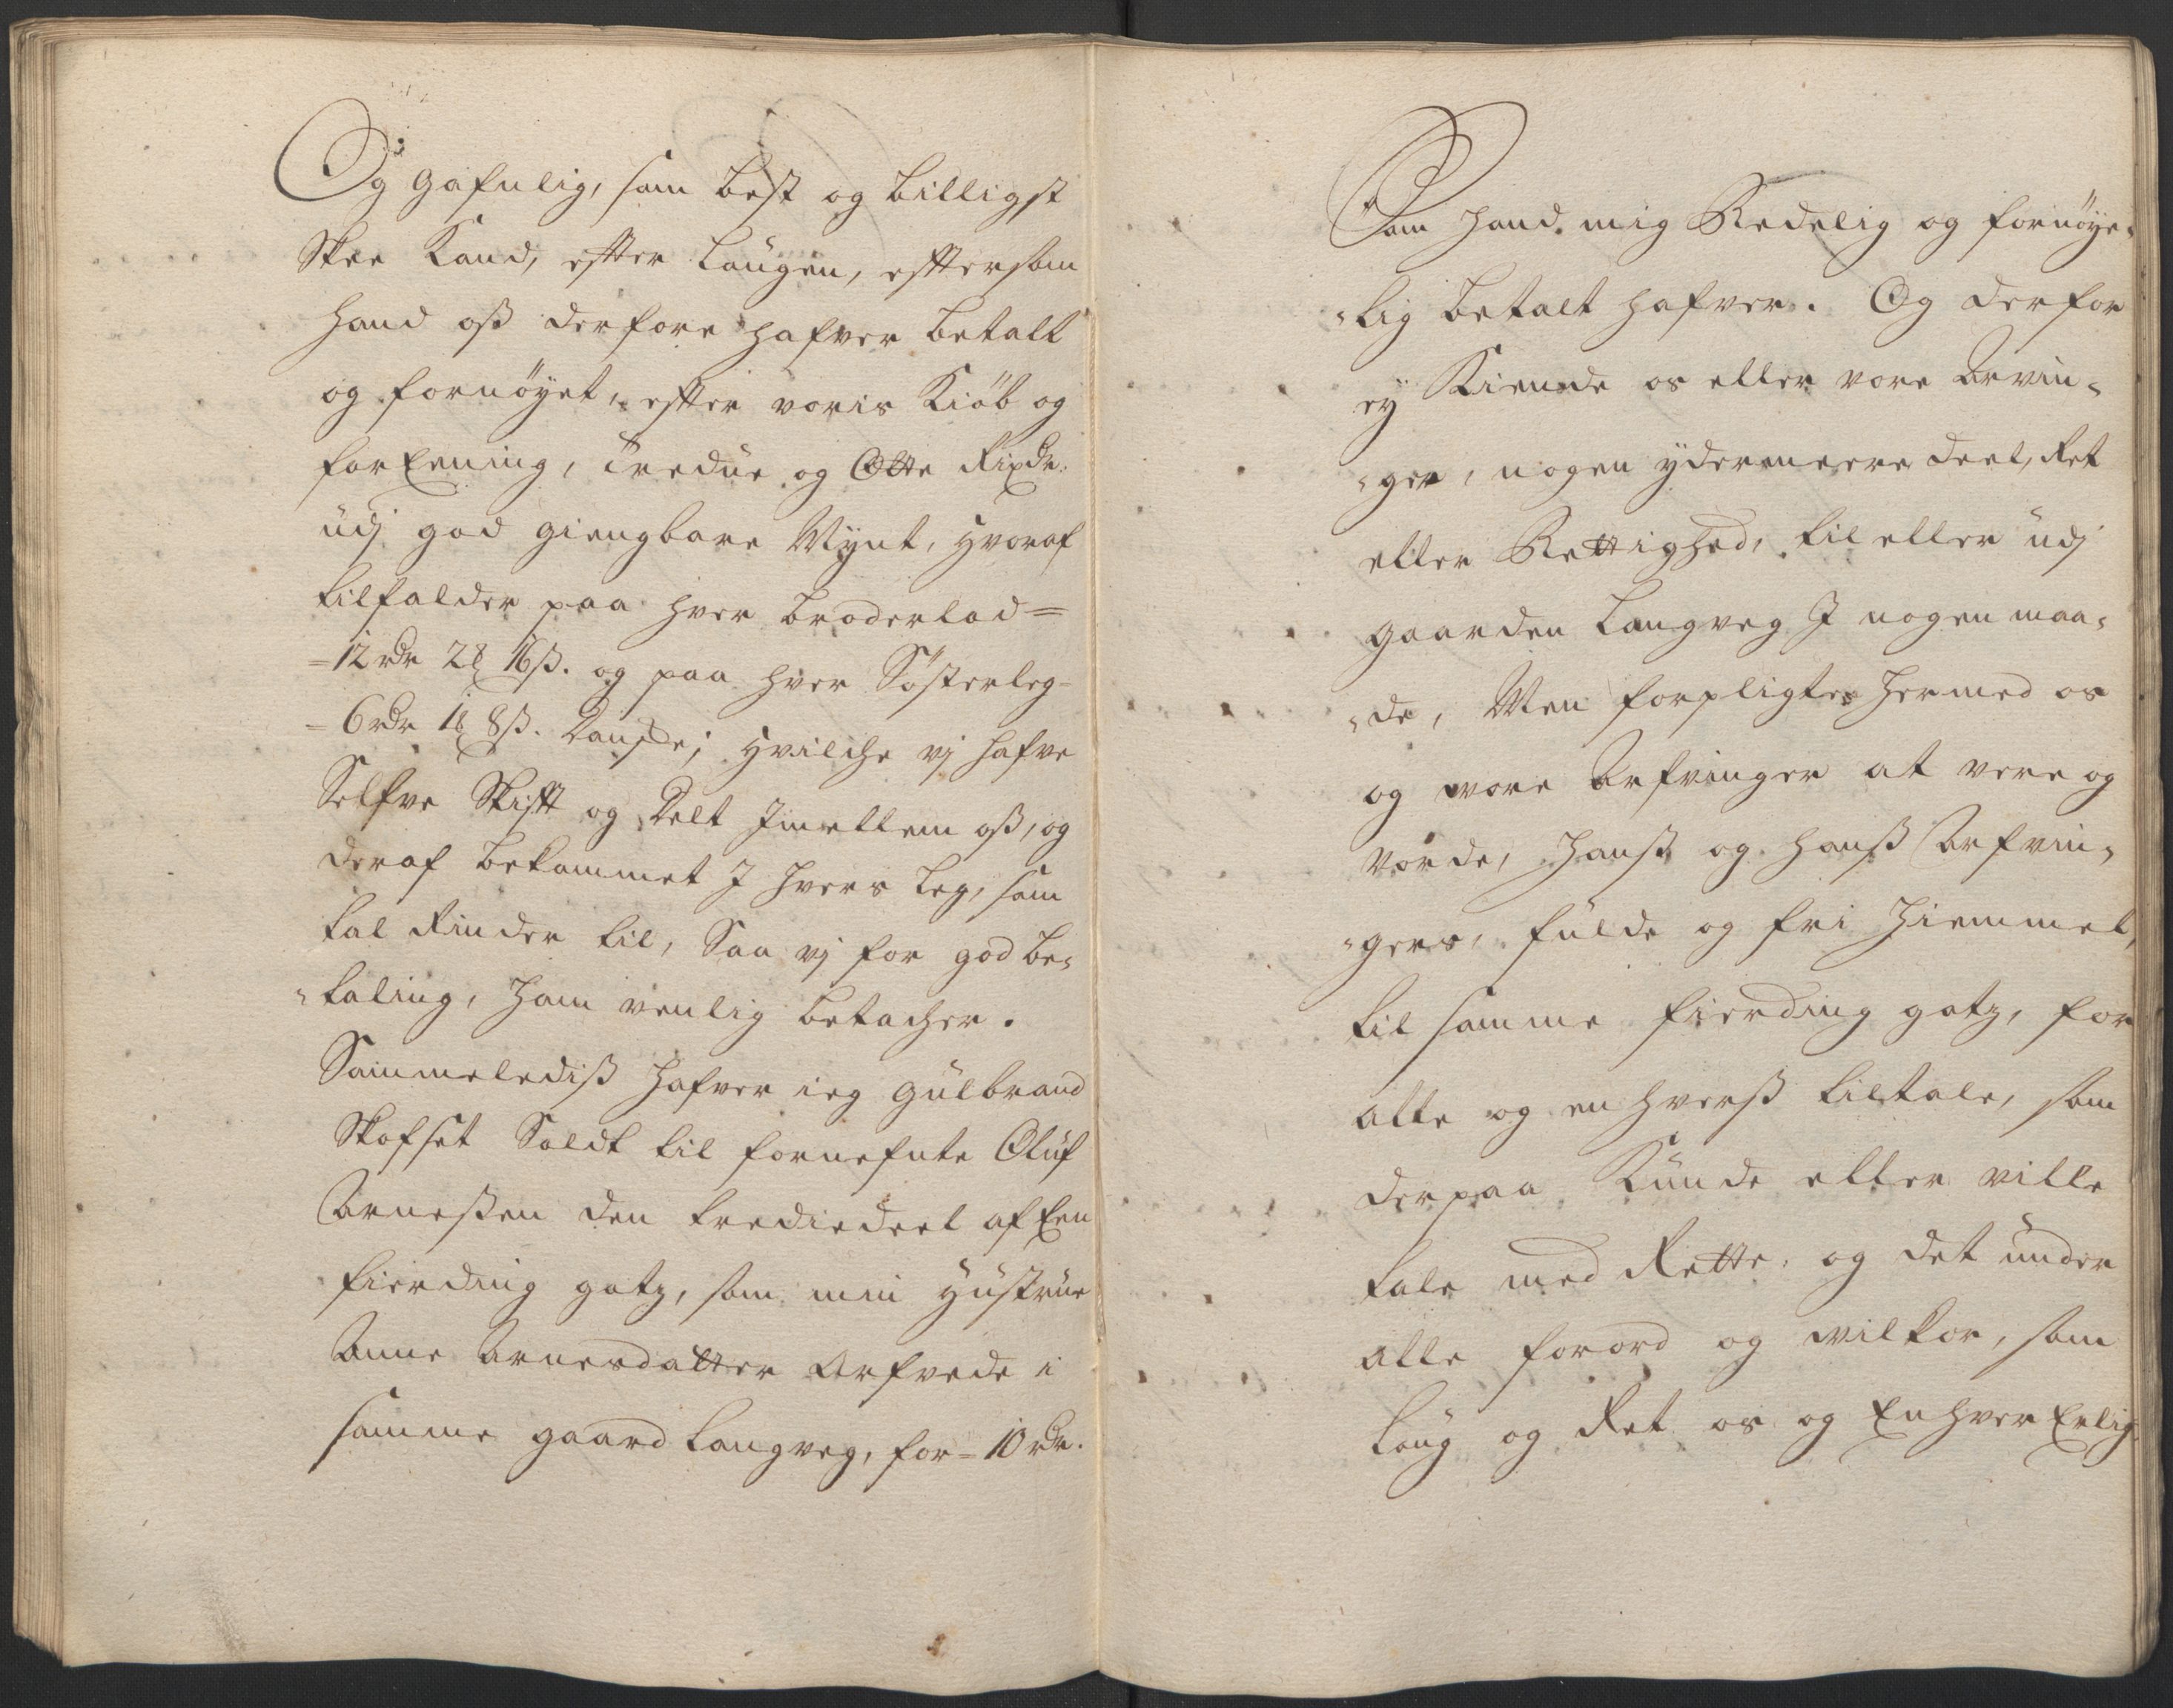 Og gafnlig, som best og billigst
Skee Kand, effter Laugen, efftersom
hand oß derfore hafver betalt
og fornöyet, effter voris Kiöb og
forEening, Tredue og Otte Rixdr:
udj god giengbare Mynt, hvoraf
tilfalder paa hver broderlod =
= 12 rdr 2 16 ß. og paa hver Sösterleg =
= 6 rdr 1 8 ß. Danske; hvilche vj hafve
Selfve Skifft og Delt Imellem oß, og
deraf bekommet J hvers Leg, som
tal Rinder til, Saa vj for god be-
-taling, ham venlig betacher.
Sammelediß hafver ieg Gulbrand
Skofset Soldt til fornefnte Oluf
Arneßen den trediedeel af Een
fierding gotz, som min hustrue
Anne Arnesdatter Arfvede i
samme gaard Langveg, for = 10 rdr.
Som hand mig Redelig og fornöye-
-lig betalt hafver. Og derfor
ey Kiende os eller vore Arvin-
-ger, nogen ydermeere deel, Ret
eller Rettighed, til eller udj
gaarden Langveg J nogen maa-
-de, Men forpligter hermed os
og wore Arfvinger at vere og
vorde, hanß og hanß Arfvin-
-gers, fulde og fri Hiemmel,
til samme fierding gotz, for
alle og en hverß tiltale, som
derpaa Kunde eller ville
tale med Rette, og det under
alle forord og wilkor, som
Loug og Ret os og Enhver Erlig